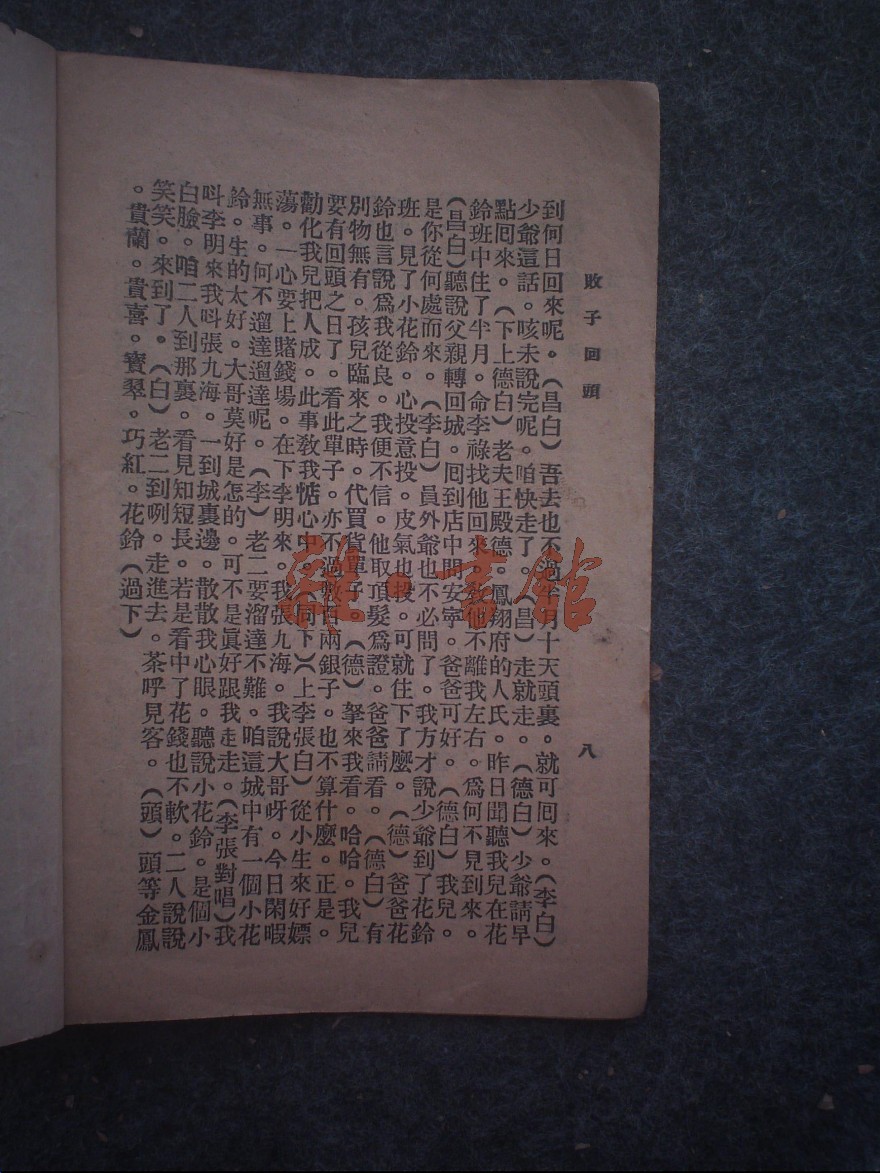 敗子回頭
八
到何日回來呢。（昌白）吾去也不過半月十天頭裏。就可囘來。（李白）
少爺這話。咳未說完呢。咱快走了。（昌）走就走。（德白）少爺請早
點囘來。（下上德白）老夫王殿德。鳳翔府的人氏。昨日聞聽我兒在花
鈴班中住了半月。命李祿找他回來。他不離我左右。爲何不見到來。
（昌白）聽說父親轉回城。囘到店中問安寧。爸爸可好。（德白）我兒。
是你從何處而來。（李白）員外爺也不必問了。我方才說少爺到了花鈴
班。見了小花鈴。心投意投。皮氣也投。可就住下了麼。（德）爸爸花
鈴也言說爲我從良。我便不信。他取頂髮爲證。爸爸請看。（德白）有
別物無有。孩兒臨來之時。代買貨單子。（德）拏來我看。哈哈。我兒
要有回頭之日了。看此單子。亦不過數百兩銀子。也不算什麼。正是。
勸化我兒把人成。此事教我惦心中。（同下）（上李張白）從小生來好嫖
蕩。一心要上賭錢場。在下李明來。我張九海。我說大哥呀。今日閑暇
無事。何不遛達遛達呢。（李）老二要溜達不難。咱這城中有一個小花
鈴。生的太好。大哥莫好是怎的。可不是眞好跟我走走。（李張對唱）我
呌李明來我呌張九海。一到城裏邊。散散我心眼。聽說小花鈴。是個小
白臉。咱二人到那裏。看見知短長。若是看中了花錢也不軟。二人說說
笑笑。來到了。（白）老二到咧。走進去。茶呼見客。（頭）頭等金鳳
。貴蘭。貴喜。寶翠。巧紅。花鈴（過下）
雜·書館